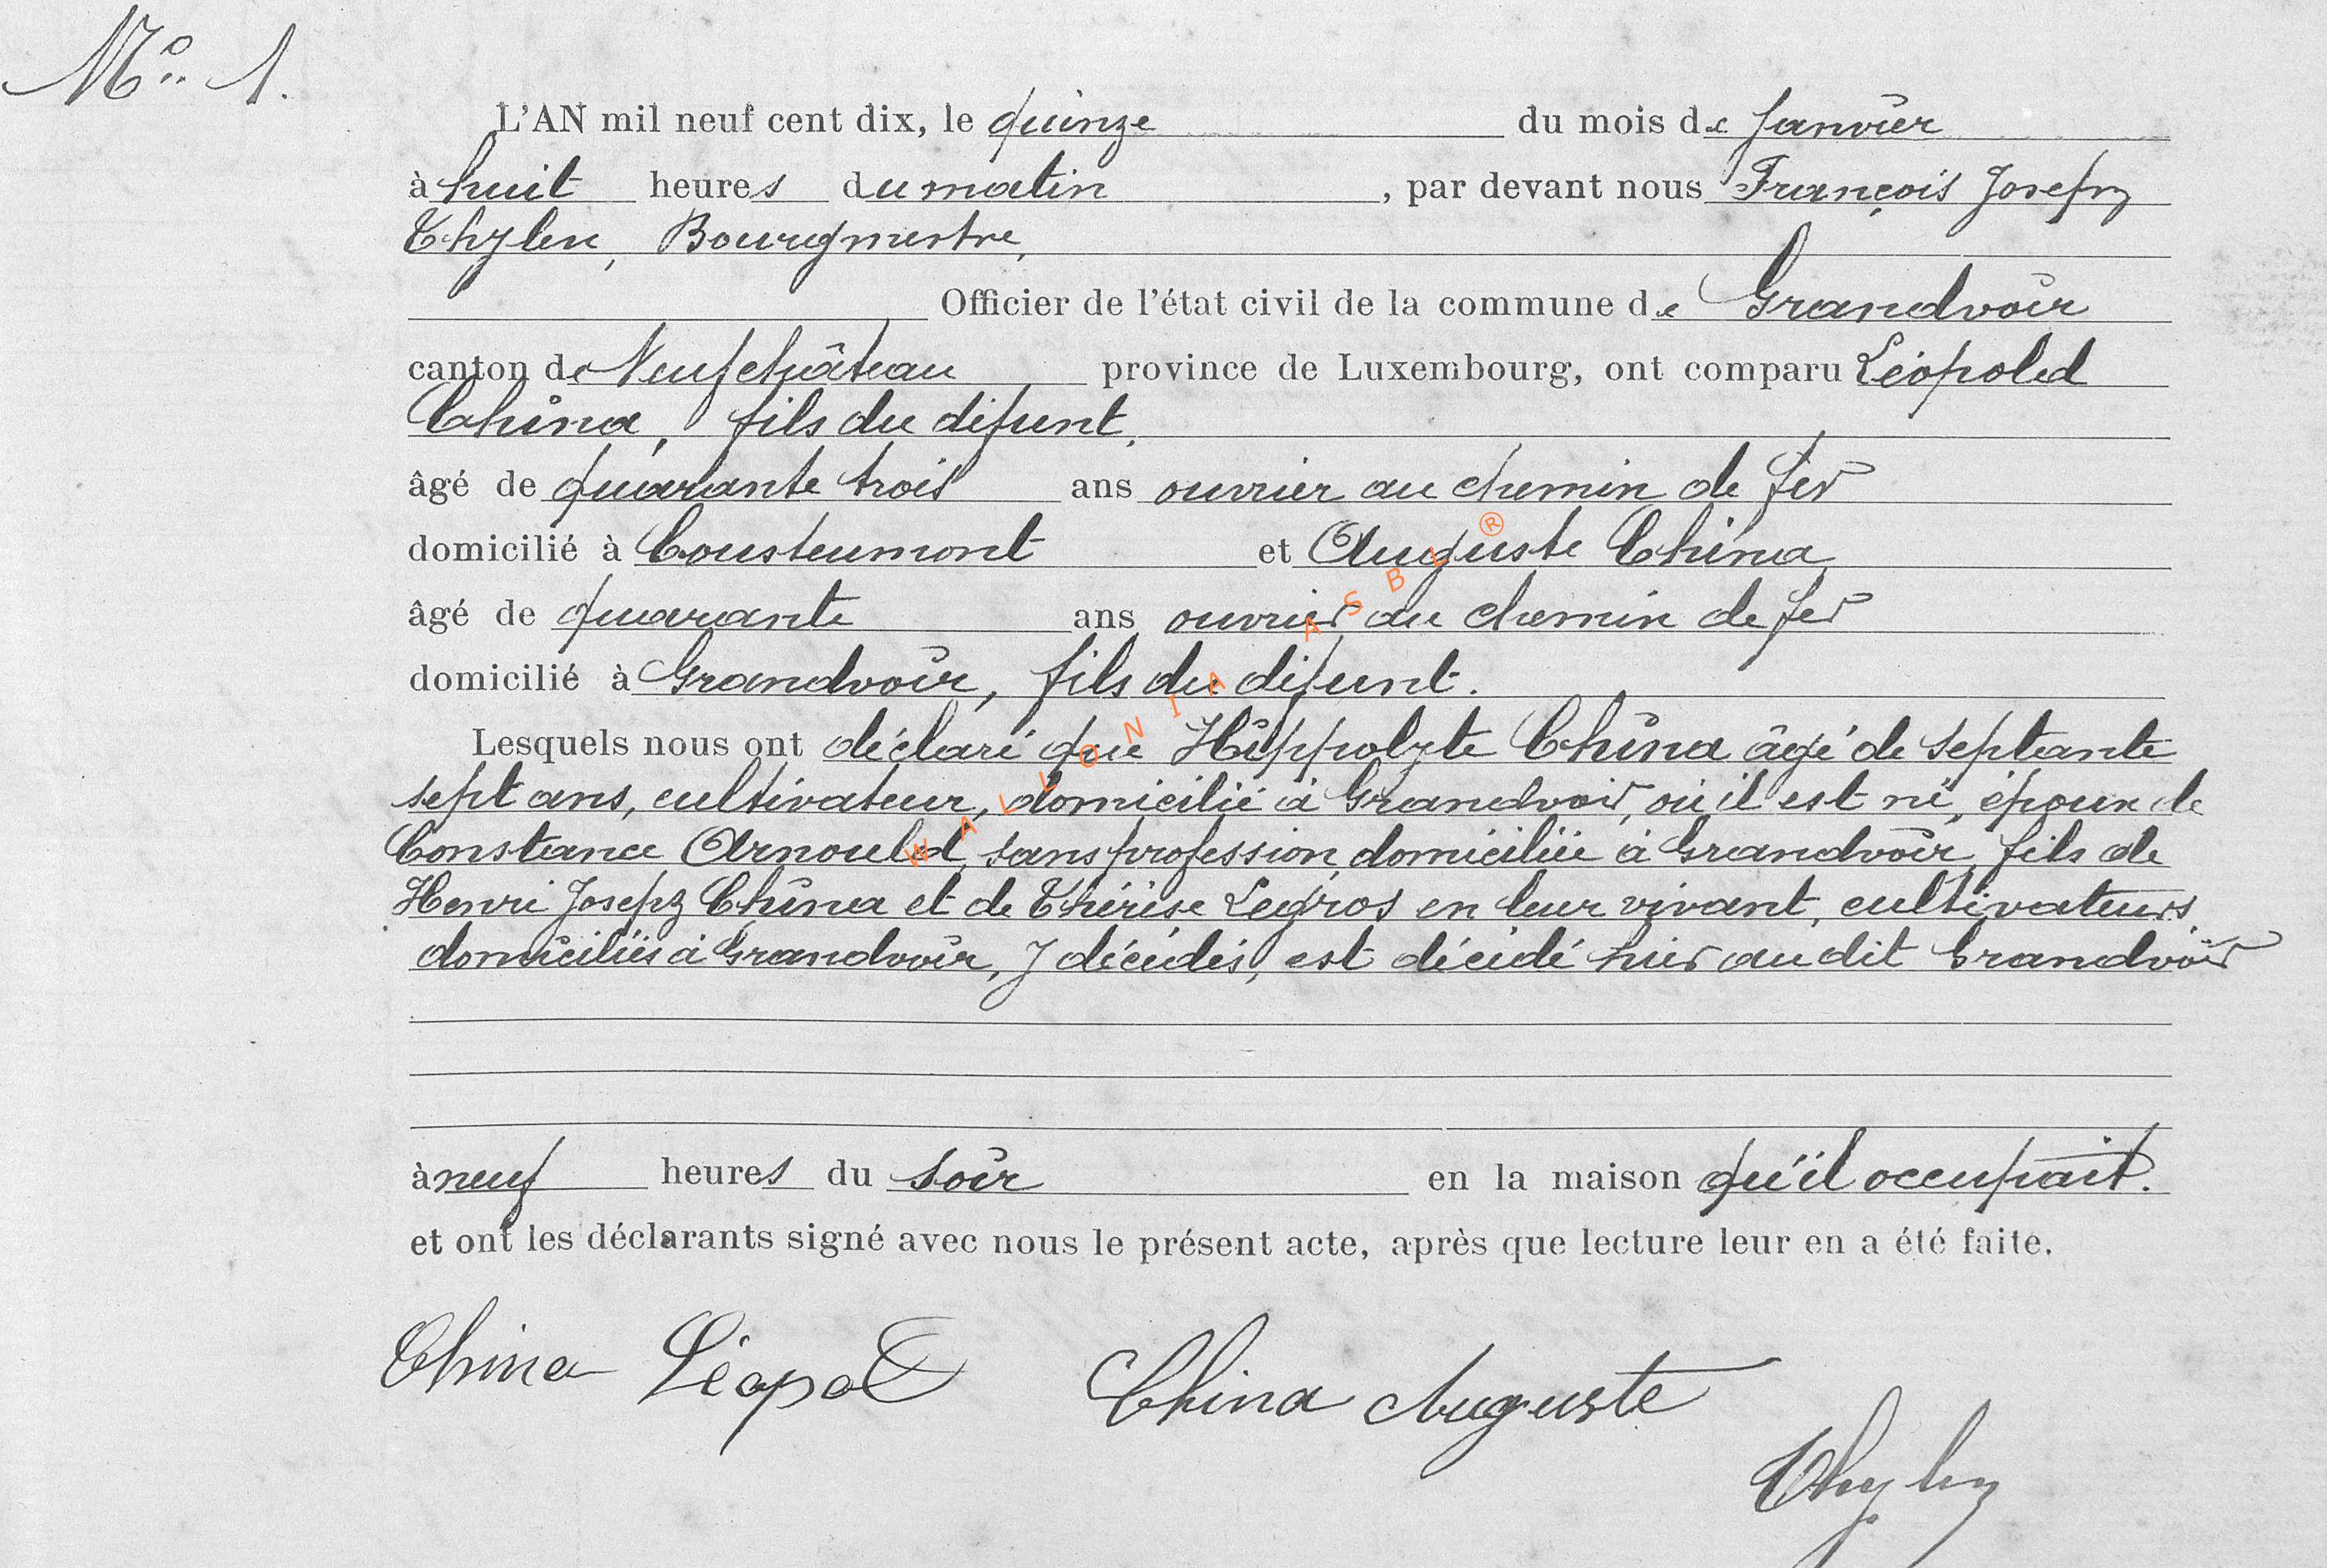 No. 1.
L'AN mil neuf cent dix, le quinze du mois de Janvier
à huit heures du matin, par devant nous François Joseph
Thylen, Bourgmestre,
Officier de l'état civil de la commune de Grandvoir
canton de Neufchâteau province de Luxembourg, ont comparu Léopold
China, fils du défunt,
âgé de quarante trois ans ouvrier au chemin de fer
domicilié à Cousteumont et Auguste China
âgé de quarante ans ouvrier au chemin de fer
domicilié à Grandvoir, fils du défunt.
Lesquels nous ont déclaré que Hippolyte China âgé de septante
sept ans, cultivateur, domicilié à Grandvoir, où il est né, époux de
Constance Arnould, sans profession, domiciliée à Grandvoir, fils de
Henri Joseph China et de Thérèse Legros en leur vivant, cultivateurs,
domiciliés à Grandvoir, y décédés, est décédé hier au dit Grandvoir
à neuf heures du soir en la maison qu'il occupait.
et ont les déclarants signé avec nous le présent acte, après que lecture leur en a été faite.
China Léopol China Auguste
Thylen
WALLONIA ASBL ®